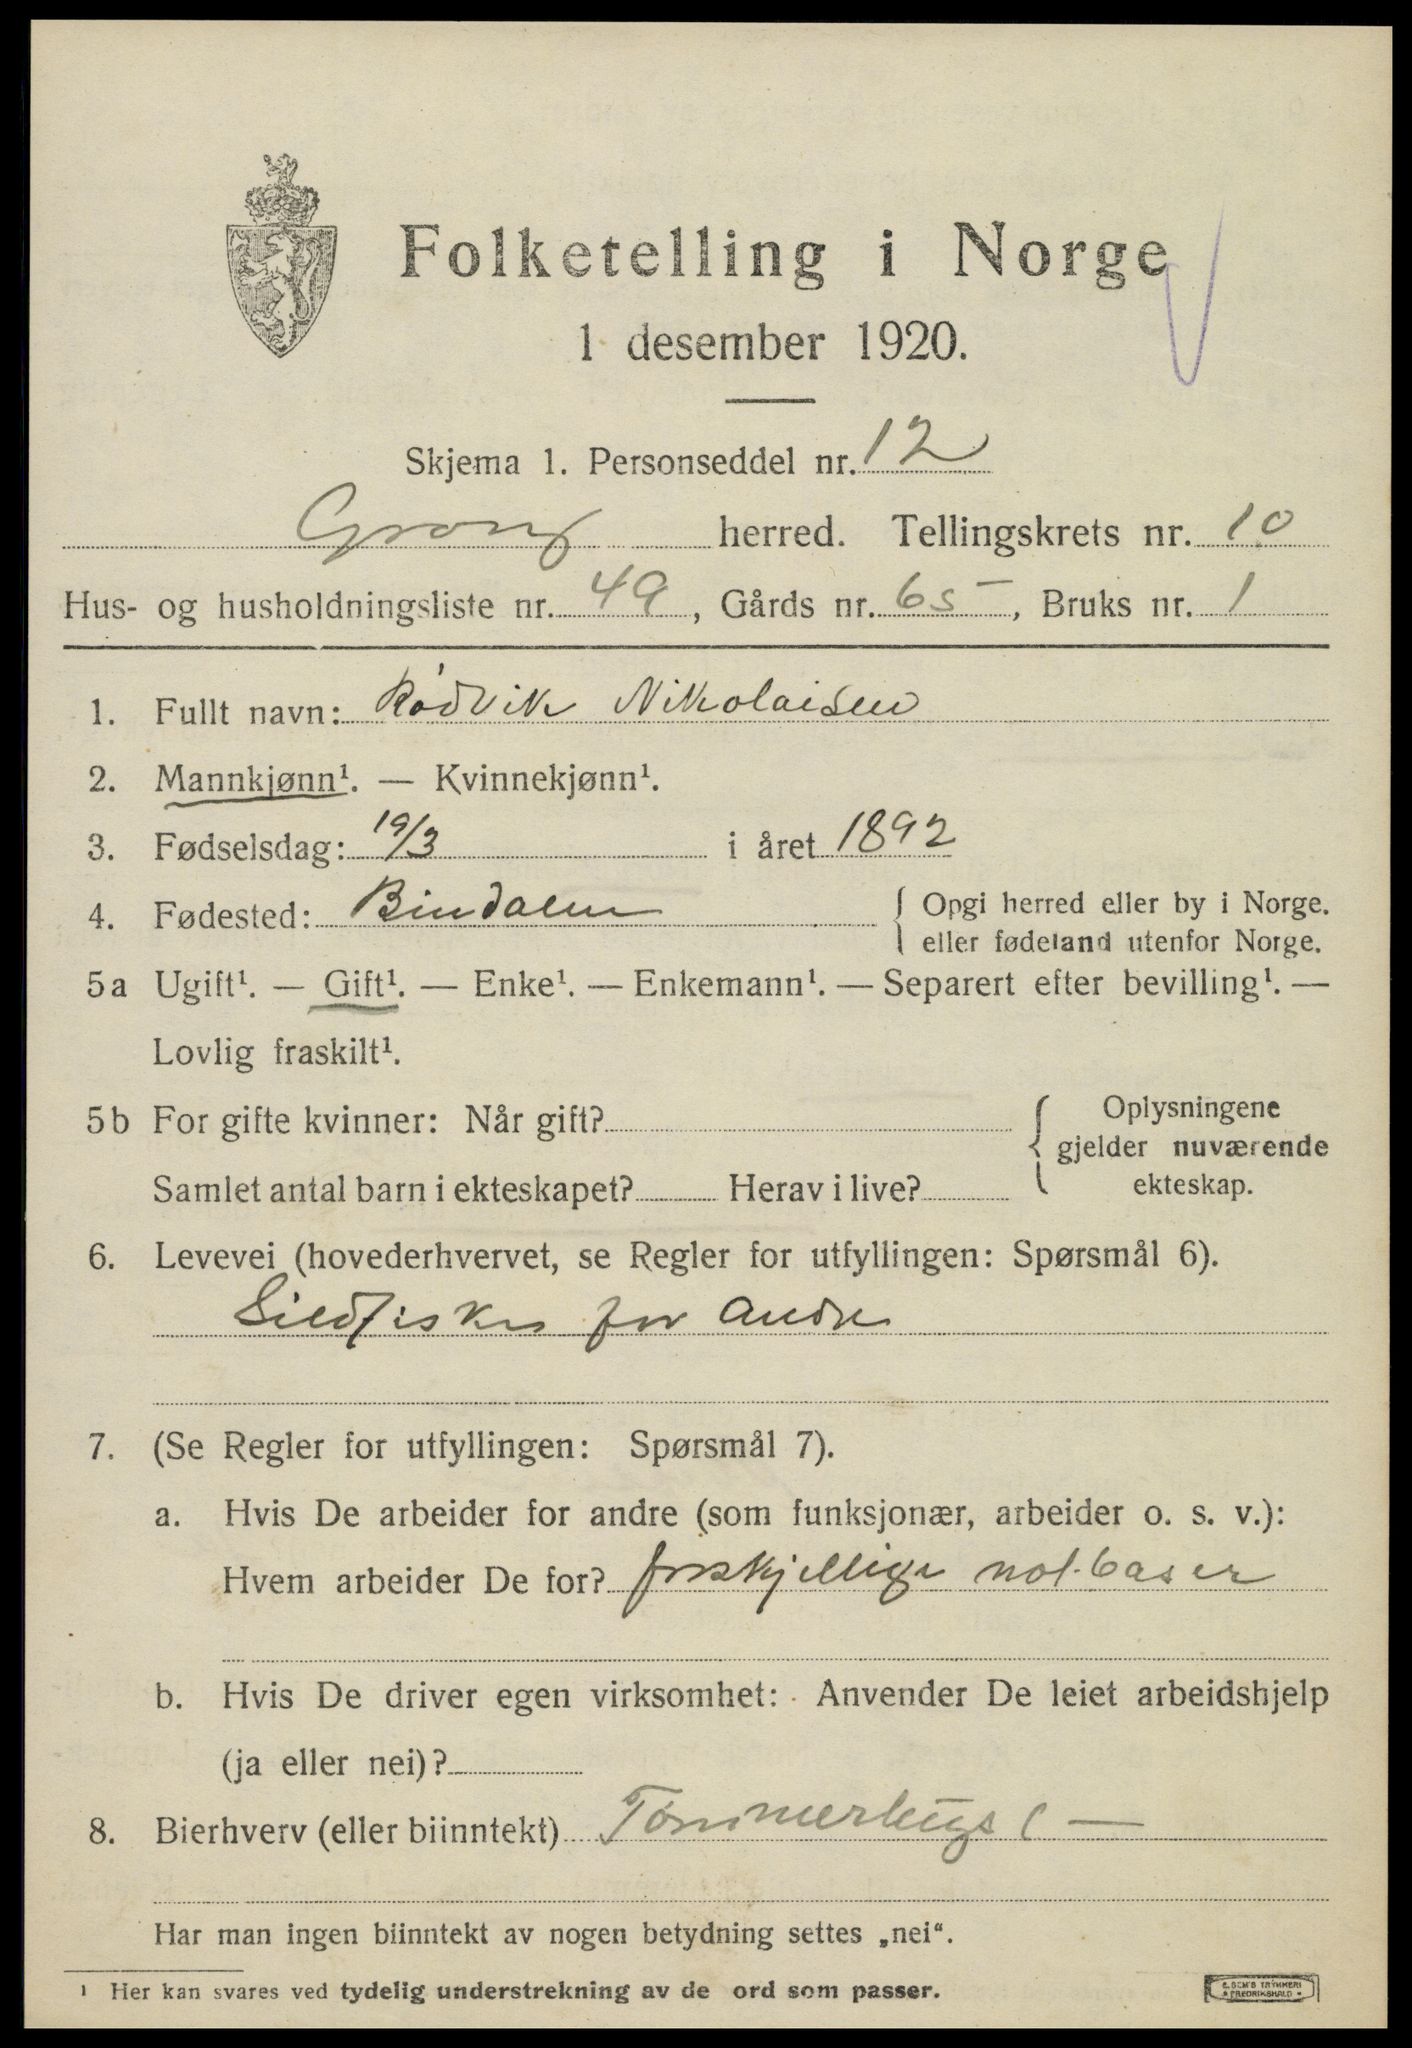 Folketelling i Norge
1 desember 1920.
Skjema 1. Personseddel nr. 12
Grong herred. Tellingskrets nr. 10
Hus- og husholdningsliste nr. 49, Gårds nr. 65, Bruks nr. 1
1. Fullt navn: Rødvik Nikolaisen
2. Mannkjønn¹. — Kvinnekjønn¹.
3. Fødselsdag: 19/3 i året 1892
4. Fødested: Bindalen { Opgi herred eller by i Norge.
eller fødeland utenfor Norge.
5a Ugift¹. — Gift¹. — Enke¹. — Enkemann¹. — Separert efter bevilling¹. —
Lovlig fraskilt¹.
5b For gifte kvinner: Når gift? { Oplysningene
gjelder nuværende
Samlet antal barn i ekteskapet? Herav i live? ekteskap.
6. Levevei (hovederhvervet, se Regler for utfyllingen: Spørsmål 6).
Sildfisker for andre
7. (Se Regler for utfyllingen: Spørsmål 7).
a. Hvis De arbeider for andre (som funksjonær, arbeider o. s. v.):
Hvem arbeider De for? forskjellige not.baser
b. Hvis De driver egen virksomhet: Anvender De leiet arbeidshjelp
(ja eller nei)?
8. Bierhverv (eller biinntekt) Tømmerhugst —
Har man ingen biinntekt av nogen betydning settes „nei“.
¹ Her kan svares ved tydelig understrekning av de ord som passer.
E. SEM'S TRYKKERI
FREDRIKSHALD